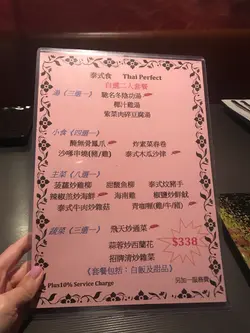 泰式食 Thai Perfect
自選二人套餐
湯（三選一） 馳名冬陰功湯
椰汁雞湯
紫菜肉碎豆腐湯
小食（四選一）
酸辣無骨鳳爪 炸素菜春卷
沙嗲串燒(豬/雞) 泰式木瓜沙律
主菜（八選一）
菠蘿炒雞柳 甜酸魚柳 泰式炆豬手
辣椒羔炒海鮮 海南雞 椒鹽炒鮮魷
泰式牛肉炒蘑菇 青咖喱(雞/牛/豬)
蔬菜（三選一） 飛天炒通菜
蒜蓉炒西蘭花
招牌清炒雜菜
$338
(套餐包括：白飯及甜品)
Plus10% Service Charge 另加一服務費